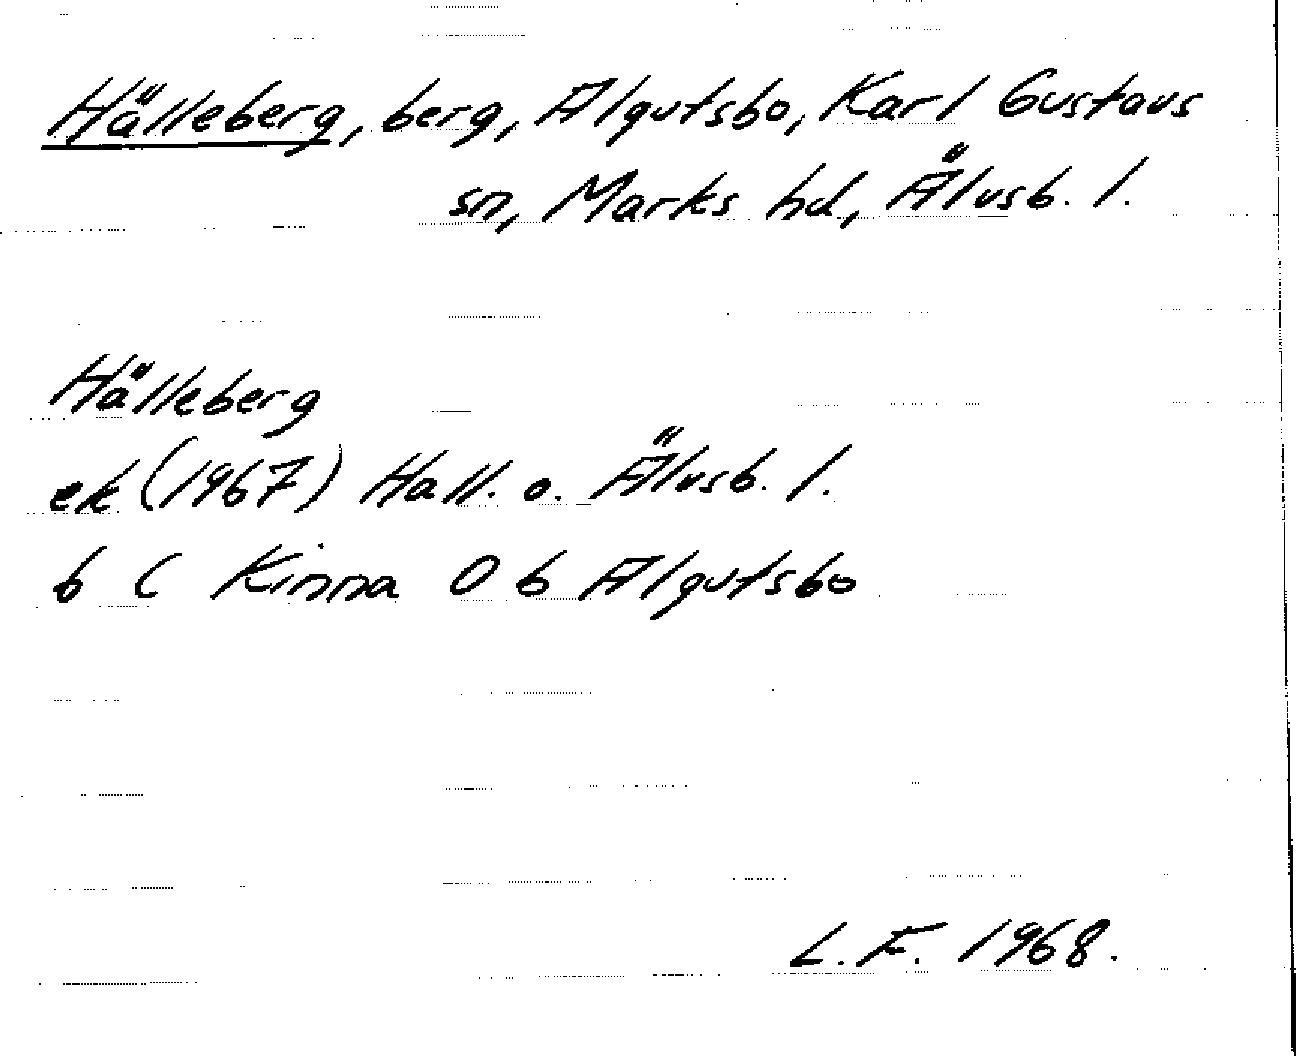 Hälleberg, berg, Algutsbo, Karl Gustavs
sn, Marks hd, Älvsb. l.
Hälleberg
ek (1967) Hall. o. Älvsb. l.
b C Kinna O b Algutsbo
L.F. 1968.